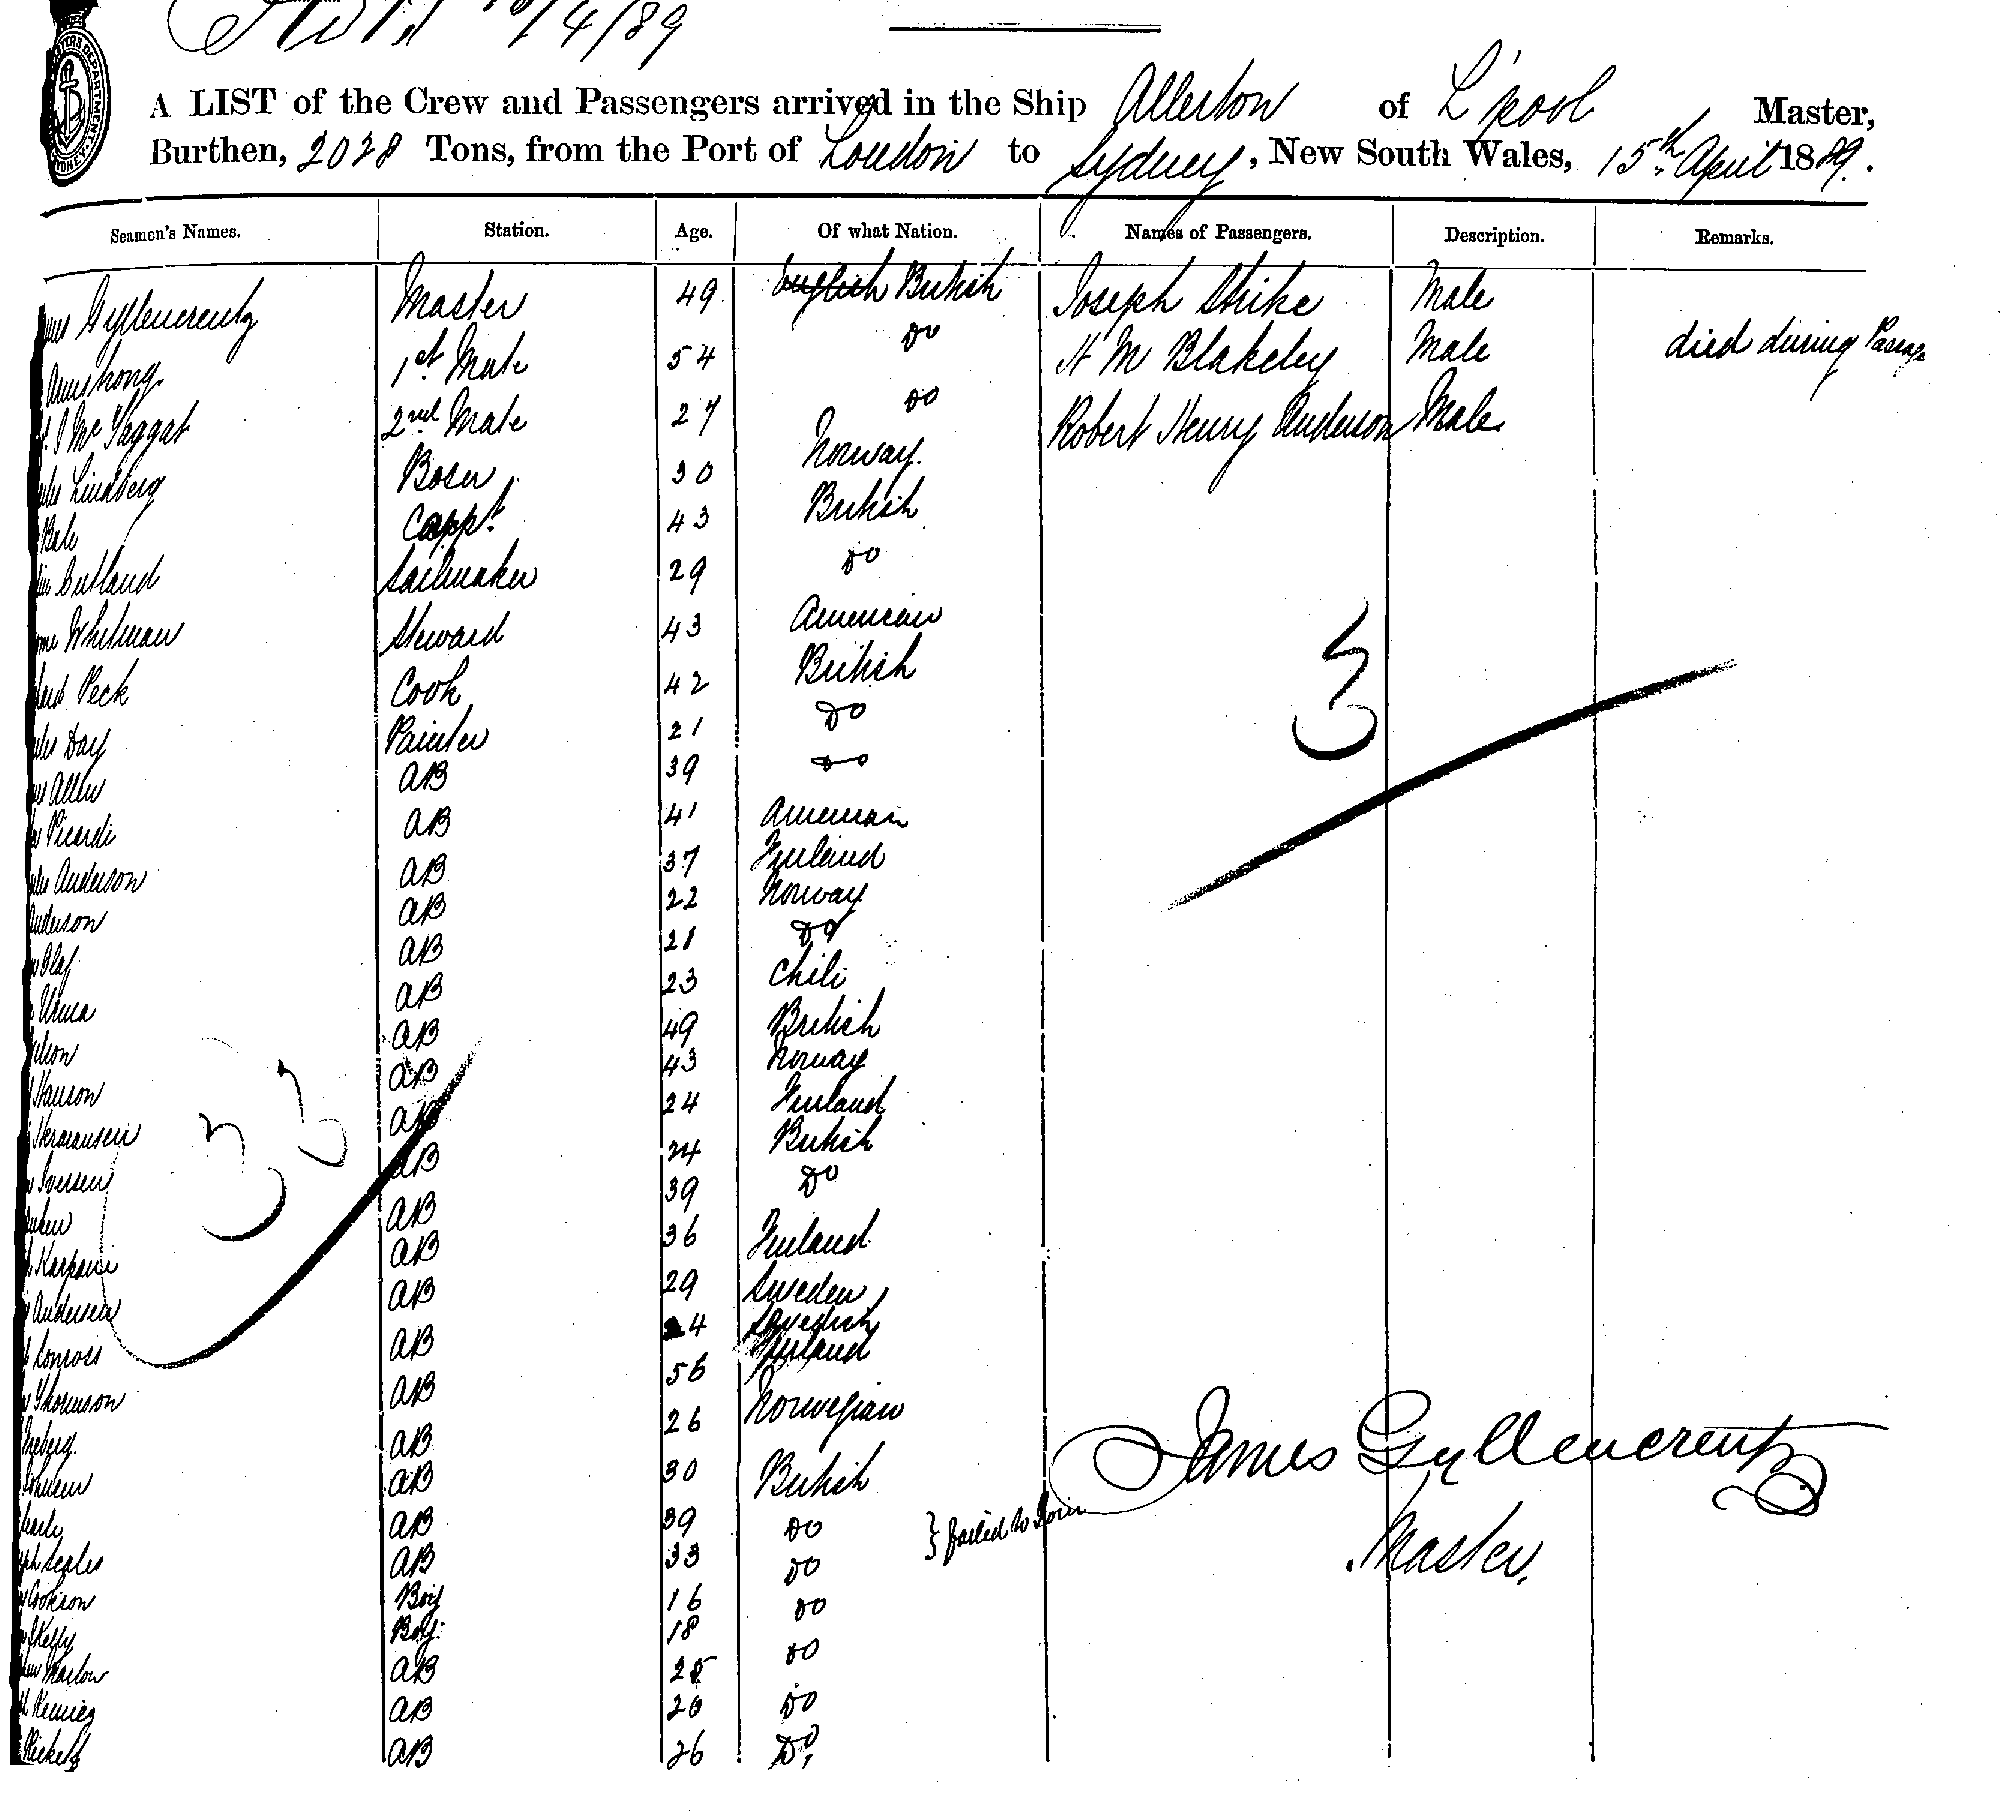 /4/89
A LIST of the Crew and Passengers arrived in the Ship Allerton of L'pool Master,
Burthen, 2028 Tons, from the Port of London to Sydney, New South Wales, 15th April 1889.
Seamen's Names. Station. Age. Of what Nation. Names of Passengers. Description. Remarks.
Gyllencreutz Master 49 English British Joseph Strike Male
Armstrong 1st Mate 54 Do H M Blakeley Male died during Passage
McTaggat 2nd Mate 27 Do Robert Henry Anderson Male
Lindberg Bosn 30 Norway
Bale Carpt 43 British
Cutland Sailmaker 29 Do
Whitman Steward 43 American
Peck Cook 42 British
Day Painter 21 Do
Allen AB 39 Do
Picardi AB 41 American
Anderson AB 37 Finland
Anderson AB 22 Norway
Olaf AB 21 Do
AB 23 Chili
AB 49 British
Hanson AB 43 Norway
Hermansen AB 24 Finland
Iversen AB 24 British
AB 39 Do
AB 36 Finland
Andersen AB 29 Sweden
AB 24 Swedish
Thomson AB 56 Finland
AB 26 Norwegian
AB 30 British
AB 39 Do } failed to Join
Scales AB 33 Do
Cookson Boy 16 Do
Kelly Boy 18 Do
AB 25 Do
AB 26 Do
AB 26 Do
3
33
James Gyllencreutz
Master.